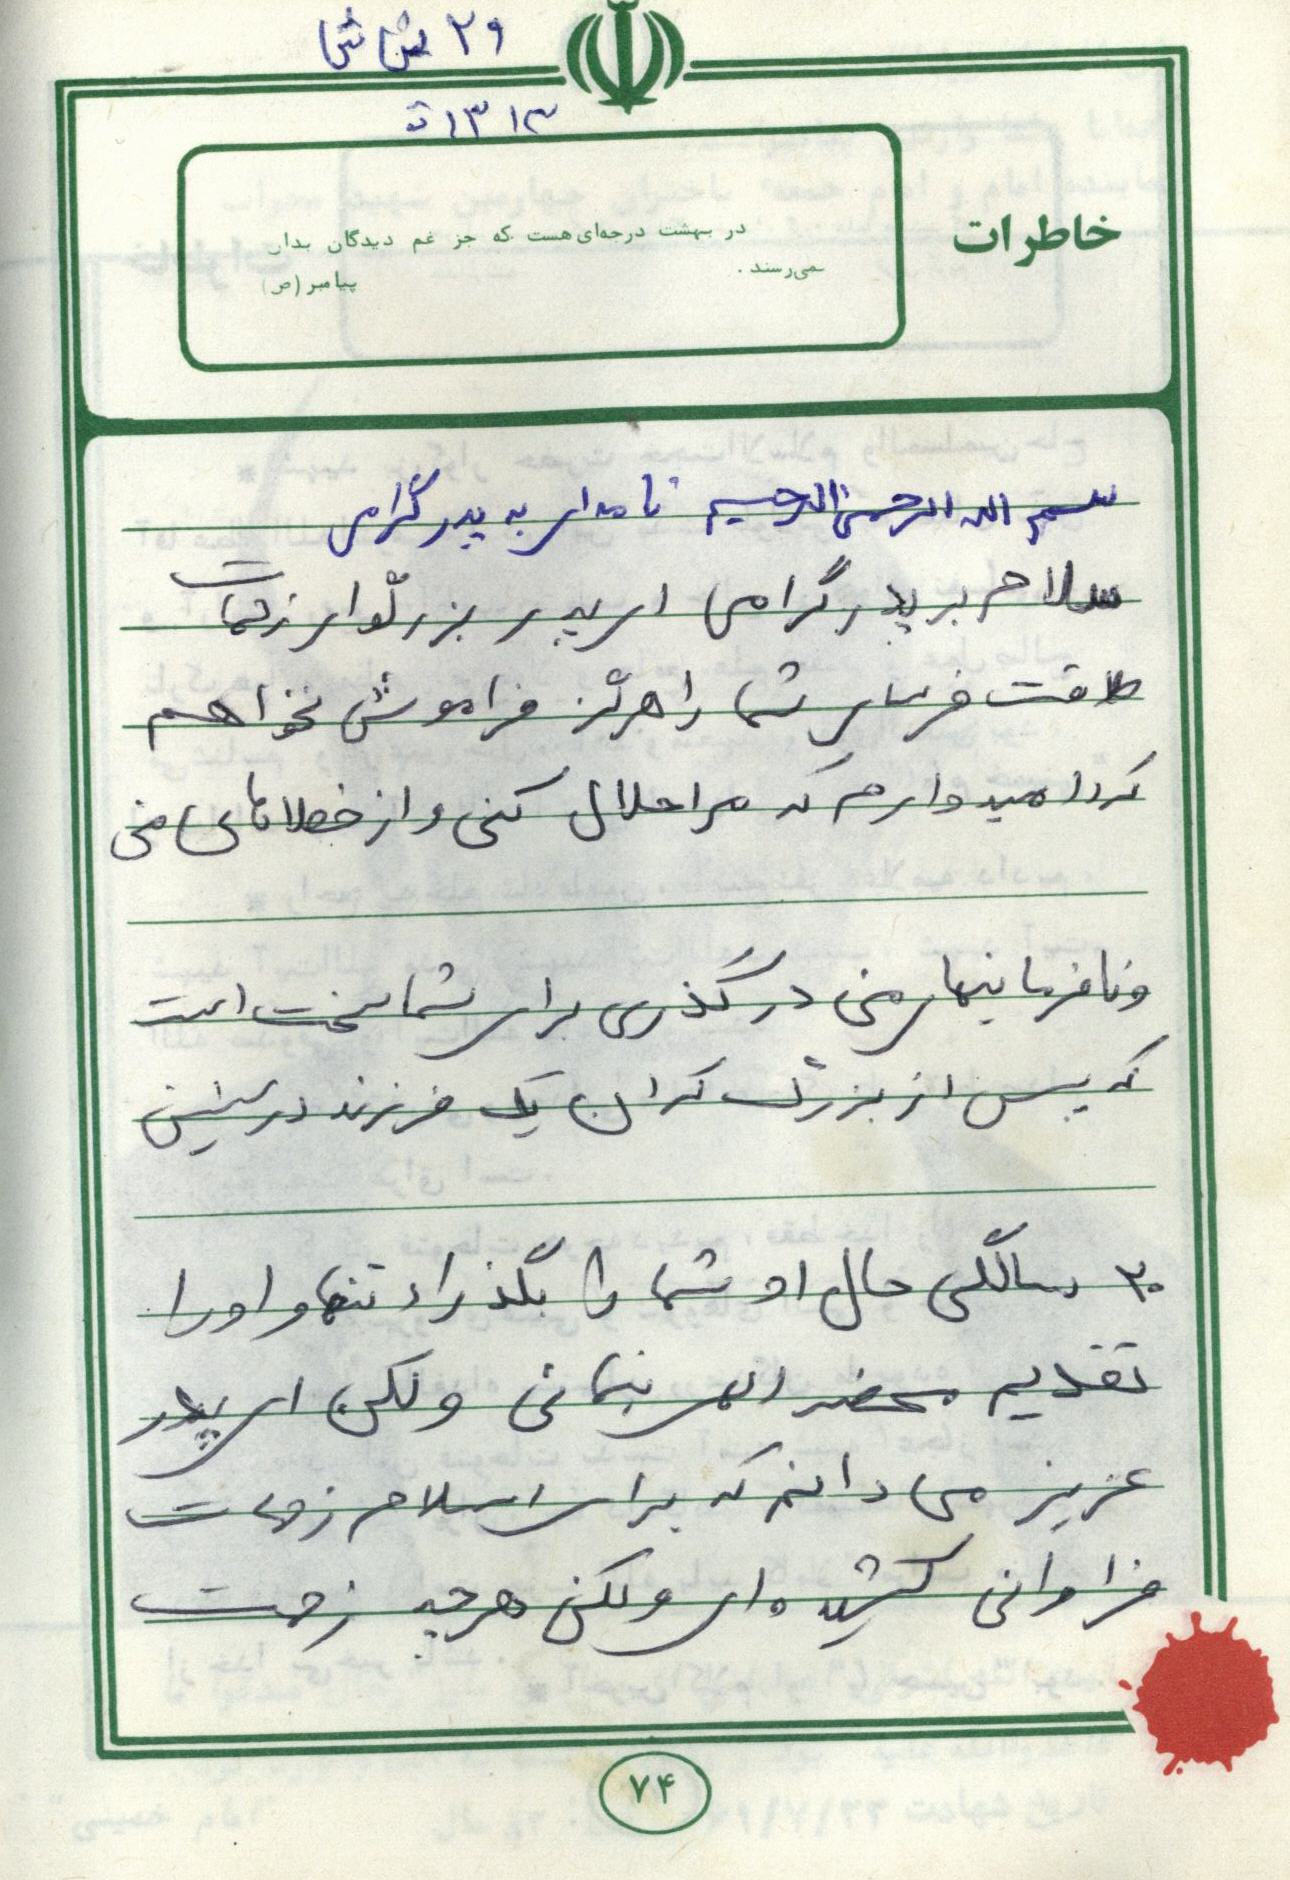 ۲۹
۱۳ ۱۳
خاطرات
در بهشت درجه‌ای هست که جز غم دیدگان بدان
نمی‌رسند .
پیامبر (ص)
بسم الله الرحمن الرحیم نامه‌ای به پدر گرامی
سلام بر پدر گرامی ای پدر بزرگوار زحمات
طاقت فرسای شما را هرگز فراموش نخواهم
کرد امیدوارم که مرا حلال کنی و از خطاهای من
و نافرمانیهای من درگذری برای شما سخت است
که پس از بزرگ کردن یک فرزند در سنین
۲۰ سالگی حال او شما را بگذراد تنها و او را
تقدیم محضر الهی بنمائی ولکن ای پدر
عزیز می دانم که برای اسلام زحمات
فراوانی کشیده ای ولکن هرچه زحمت
۷۴